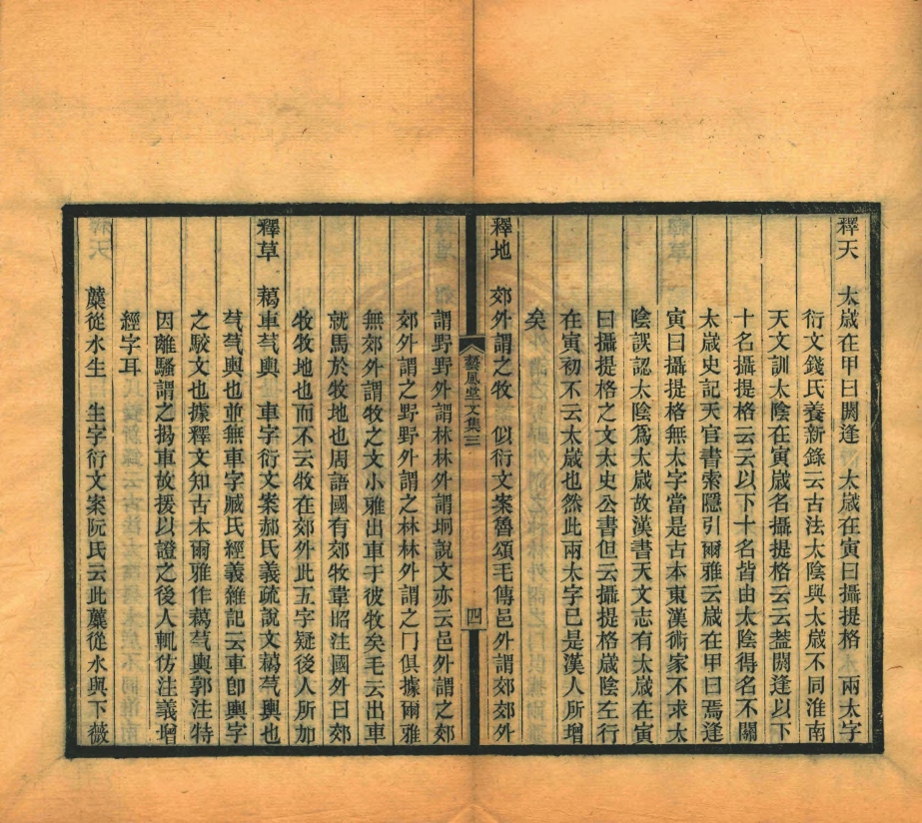 釋天　太歲在甲曰閼逢　太歲在寅曰攝提格　兩太字
衍文錢氏養新錄云古法太陰與太歲不同淮南
天文訓太陰在寅歲名攝提格云云葢閼逢以下
十名攝提格云云以下十名皆由太陰得名不關
太歲史記天官書索隱引爾雅云歲在甲曰焉逢
寅曰攝提格無太字當是古本東漢術家不求太
陰誤認太陰爲太歲故漢書天文志有太歲在寅
曰攝提格之文太史公書但云攝提格歲陰左行
在寅初不云太歲也然此兩太字已是漢人所增
矣
釋地　郊外謂之牧　似衍文案魯頌毛傳邑外謂郊郊外
藝風堂文集三
四
謂野野外謂林林外謂坰說文亦云邑外謂之郊
郊外謂之野野外謂之林林外謂之冂俱據爾雅
無郊外謂牧之文小雅出車于彼牧矣毛云出車
就馬於牧地也周語國有郊牧韋昭注國外曰郊
牧牧地也而不云牧在郊外此五字疑後人所加
釋草　藒車芞輿　車字衍文案郝氏義疏說文藒芞輿也
芞芞輿也並無車字臧氏經義雜記云車卽輿字
之駮文也據釋文知古本爾雅作藒芞輿郭注特
因離騷謂之揭車故援以證之後人輒仿注義增
經字耳
蘪從水生　生字衍文案阮氏云此蘪從水與下薇